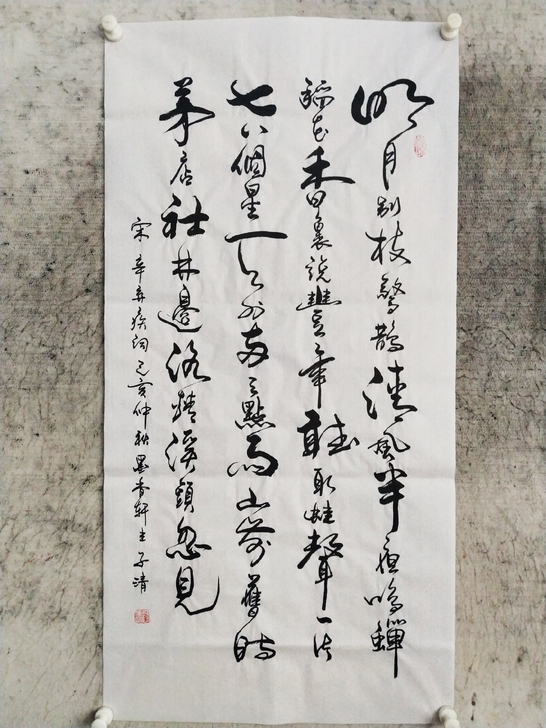 明月别枝驚鵲清風半夜鳴蟬
稻花香裏說豐年聽取蛙聲一片
七八個星天外兩三點雨山前舊時
茅店社林邊路轉溪頭忽見
宋辛弃疾詞己亥仲秋墨香軒主子清